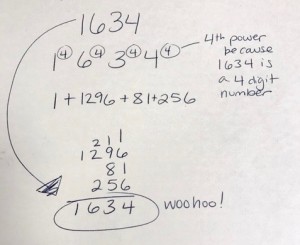 1634
1④ 6④ 3④ 4④
4th power
because
1634 is
a 4 digit
number
1 + 1296 + 81 + 256
2 1 1
1296
81
256
1634
woohoo!